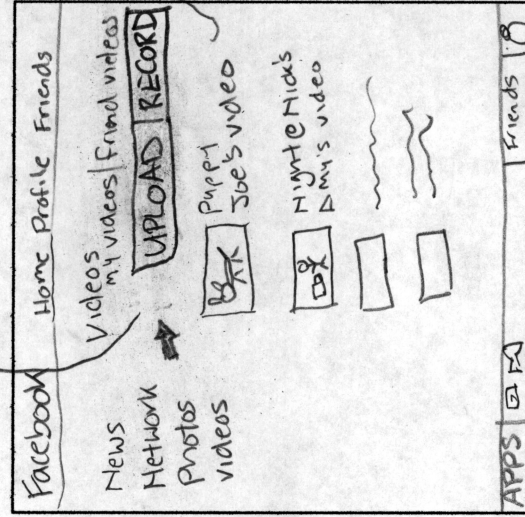 Facebook Home Profile Friends
News
Network
Photos
Videos
Videos
my videos | Friend videos
UPLOAD | RECORD
Puppy
Joe's video
Night@Nick's
Amy's video
APPS
Friends